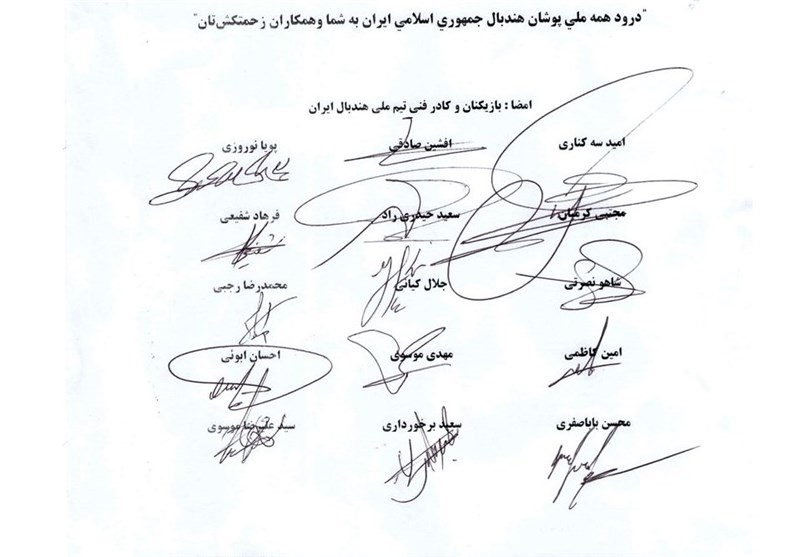 "درود همه ملي پوشان هندبال جمهوري اسلامي ايران به شما وهمكاران زحمتكش‌تان"
امضا : بازیکنان و کادر فنی تیم ملی هندبال ایران
امید سه کناری افشین صادقی پویا نوروزی
مجتبی کرمیان سعید حیدری راد فرهاد شفیعی
شاهو نصرتی جلال کیانی محمدرضا رجبی
امین کاظمی مهدی موسوی احسان ابوئی
محسن باباصفری سعید برخورداری سید علیرضا موسوی